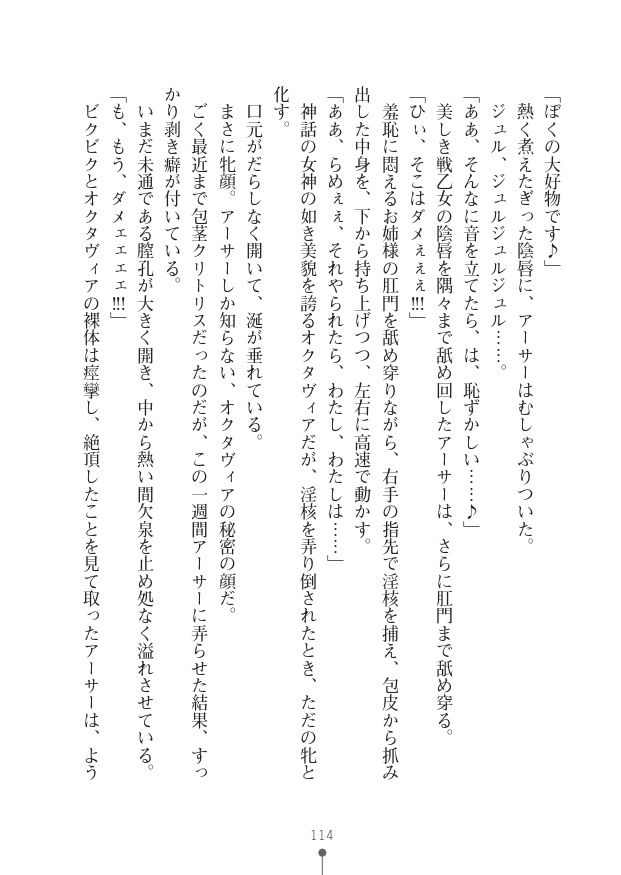 「ぼくの大好物です♪」
熱く煮えたぎった陰唇に、アーサーはむしゃぶりついた。
ジュル、ジュルジュルジュル……。
「ああ、そんなに音を立てたら、は、恥ずかしい……♪」
美しき戦乙女の陰唇を隅々まで舐め回したアーサーは、さらに肛門まで舐め穿る。
「ひぃ、そこはダメぇぇぇ!!!」
羞恥に悶えるお姉様の肛門を舐め穿りながら、右手の指先で淫核を捕え、包皮から抓み
出した中身を、下から持ち上げつつ、左右に高速で動かす。
「ああ、らめぇぇ、それやられたら、わたし、わたしは……」
神話の女神の如き美貌を誇るオクタヴィアだが、淫核を弄り倒されたとき、ただの牝と
化す。
口元がだらしなく開いて、涎が垂れている。
まさに牝顔。アーサーしか知らない、オクタヴィアの秘密の顔だ。
ごく最近まで包茎クリトリスだったのだが、この一週間アーサーに弄らせた結果、すっ
かり剥き癖が付いている。
いまだ未通である膣孔が大きく開き、中から熱い間欠泉を止め処なく溢れさせている。
「も、もう、ダメェェェェ!!!」
ビクビクとオクタヴィアの裸体は痙攣し、絶頂したことを見て取ったアーサーは、よう
114